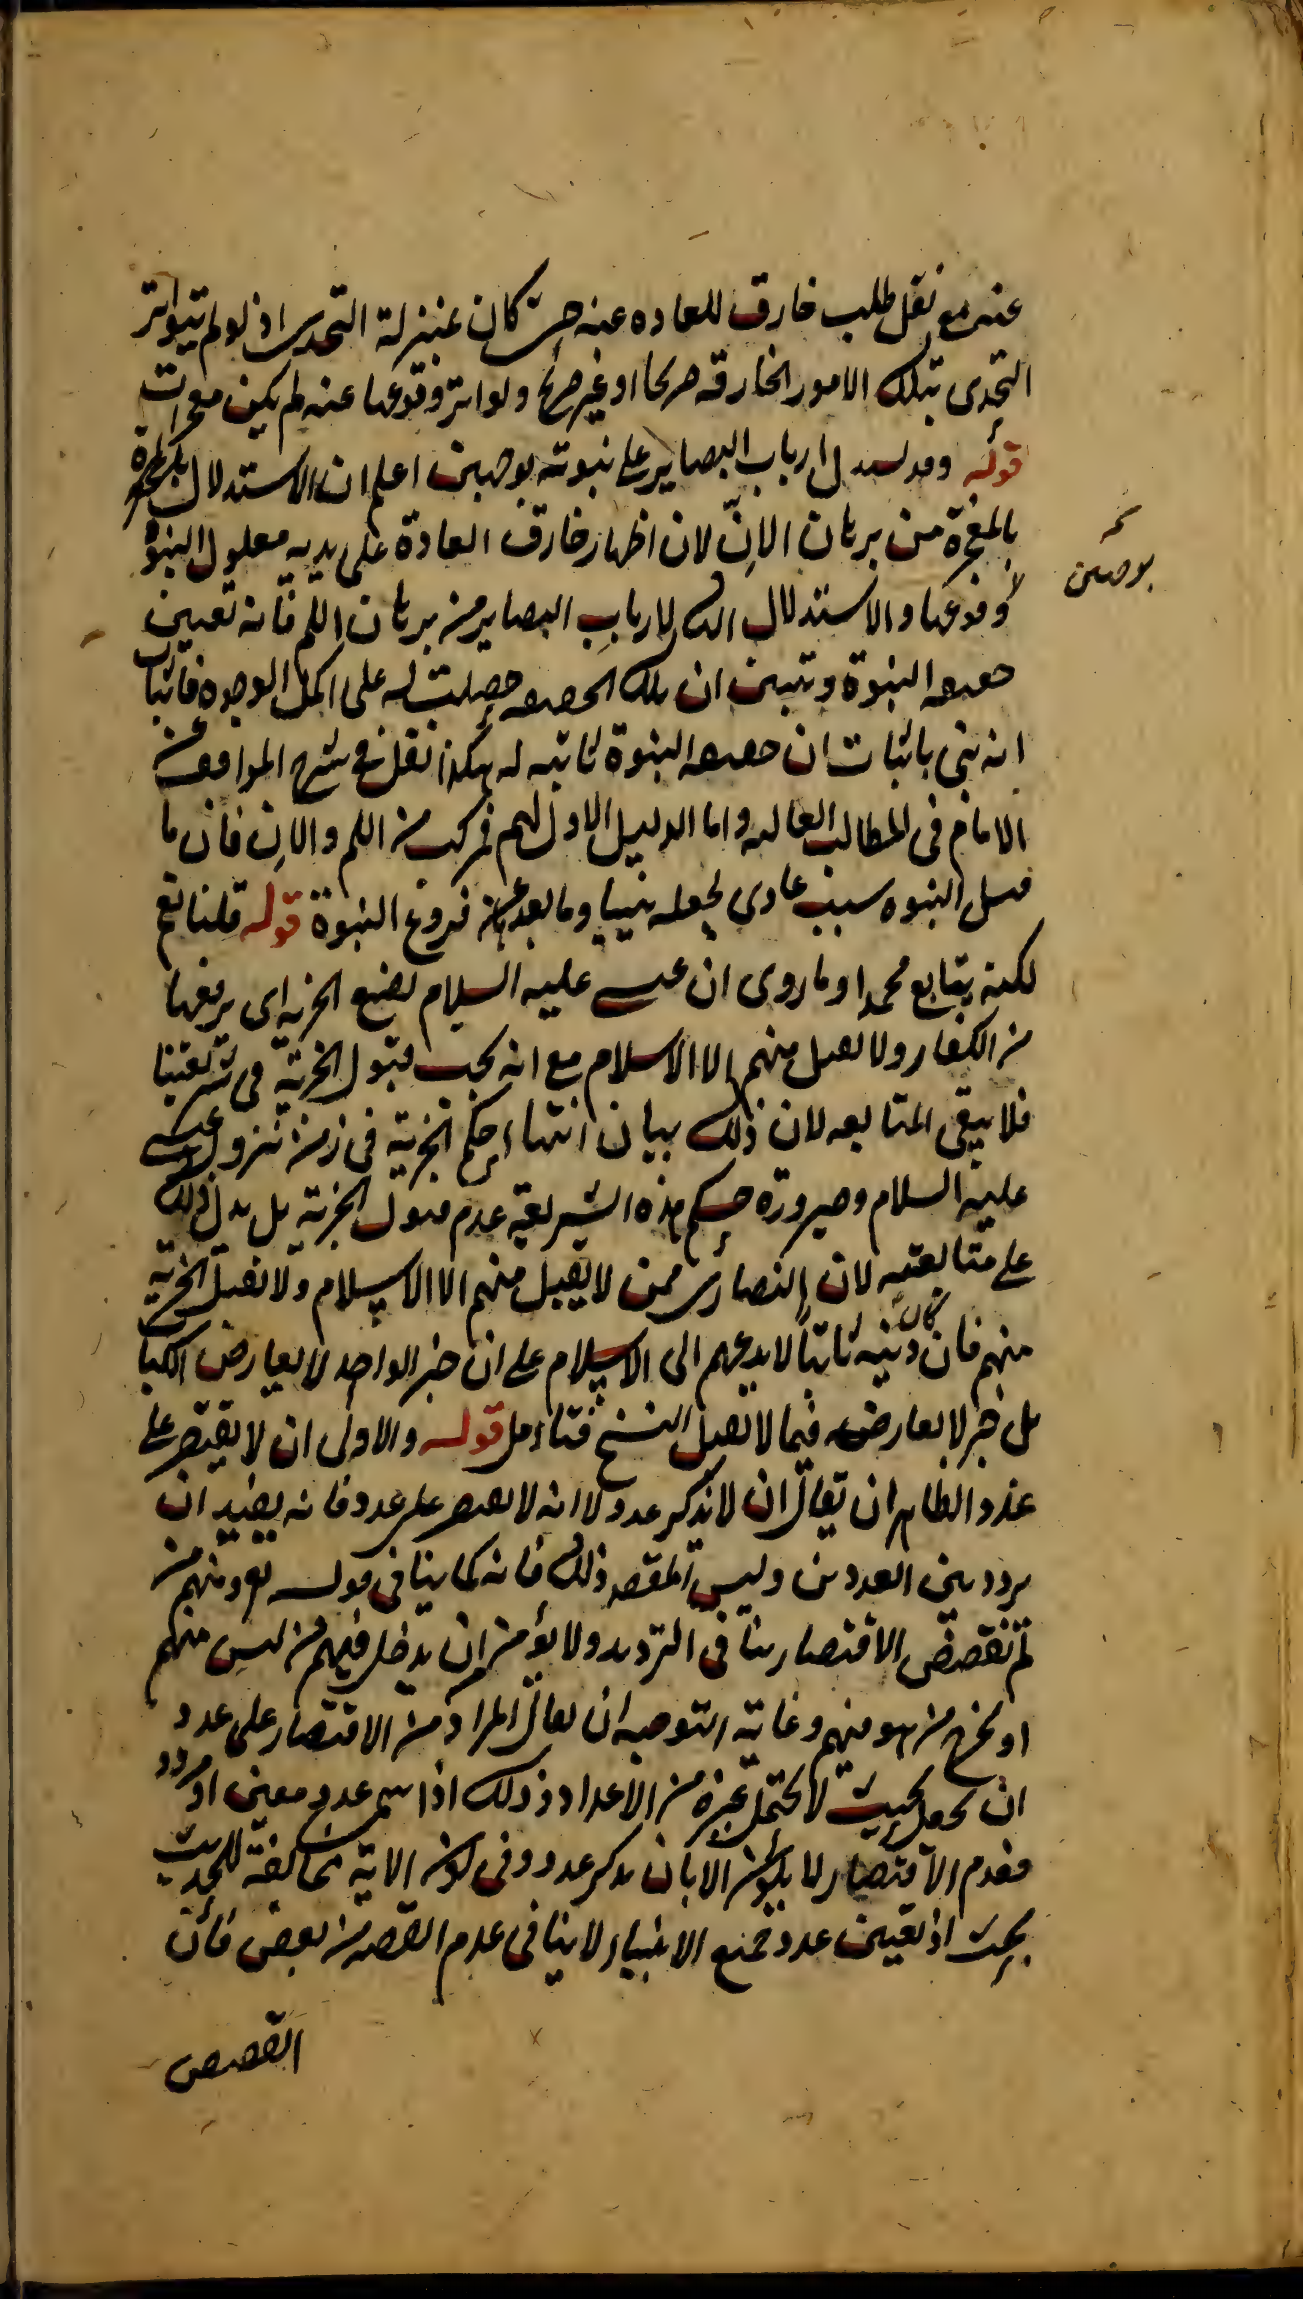 عنه مع نقل طلب خارق للعاده عنه حتى كان بمنزلة التحدى اذ لو لم يتواتر
التحدى بتلك الامور الخارقه صريحا او غير صريح ولو اتر وقوعها عنه لم يكن معجزات
قوله وقد يستدل ارباب البصاير على نبوته بوجهين اعلم ان الاستدلال
بالمعجزة من برهان الانّ لان اظهار خارق العادة على يديه معلول النبوة
وقوعها والاستدلال الذى لارباب البصاير من برهان اللم فانه تعيين
حقيقه النبوة وتبين ان تلك الحقيقه حصلت له على اكمل الوجوه فاثبات
انه نبى باثبات ان حقيقه النبوة ثابته له هكذا نقل فى شرح المواقف عن
الامام فى المطالب العاليه واما الدليل الاول لهم فمركب من اللم والان فان ما
قبل النبوه سبب عادى لجعله نبيا وما بعدها من فروع النبوة قوله قلنا نعم
لكنه يتابع محمدا وما روى ان عيسى عليه السلام يضع الجزيه اى يرفعها
من الكفار ولا يقبل منهم الا الاسلام مع انه يجب قبول الجزية فى شريعتنا
فلا يبقى المتابعه لان ذلك بيان انتهاء حكم الجزية فى زمن نزول عيسى
عليه السلام وصيرورة حكم هذه الشريعة عدم قبول الجزية بل يدل ذلك
على متابعته لان النصارى ممن لا يقبل منهم الا الاسلام ولا يقبل الجزية
منهم فان كان دينه ثابتا لا يدعهم الى الاسلام على ان خبر الواحد لا يعارض الكتا
بل خبر لا يعارضه فيما لا يقبل النسخ فتاءمل قوله والاولى ان لا يقتصر على
عدد الظاهر ان يقال ان لا يذكر عدد لا انه لا يقتصر على عدد فانه يفيد ان
يردد بين العددين وليس المقصد ذلك فانه كما ينافى قوله تع ومنهم من
لم نقصص الاقتصار ينافى الترديد ولا يؤمن ان يدخل فيهم من ليس منهم
او يخرج من هو منهم وغاية التوجيه ان يقال المراد من الاقتصار على عدد
ان يجعل بحيث لا يحتمل غيره من الاعداد وذلك اذا سمى عدد معين او ردد
فعدم الاقتصار لا يكون الا بان يذكر عدد وفى كون الاية مخالفة للحديث
بحث اذ تعيين عدد جميع الانبياء لا ينافى عدم القصه من بعض فان
القصص
بوجهين